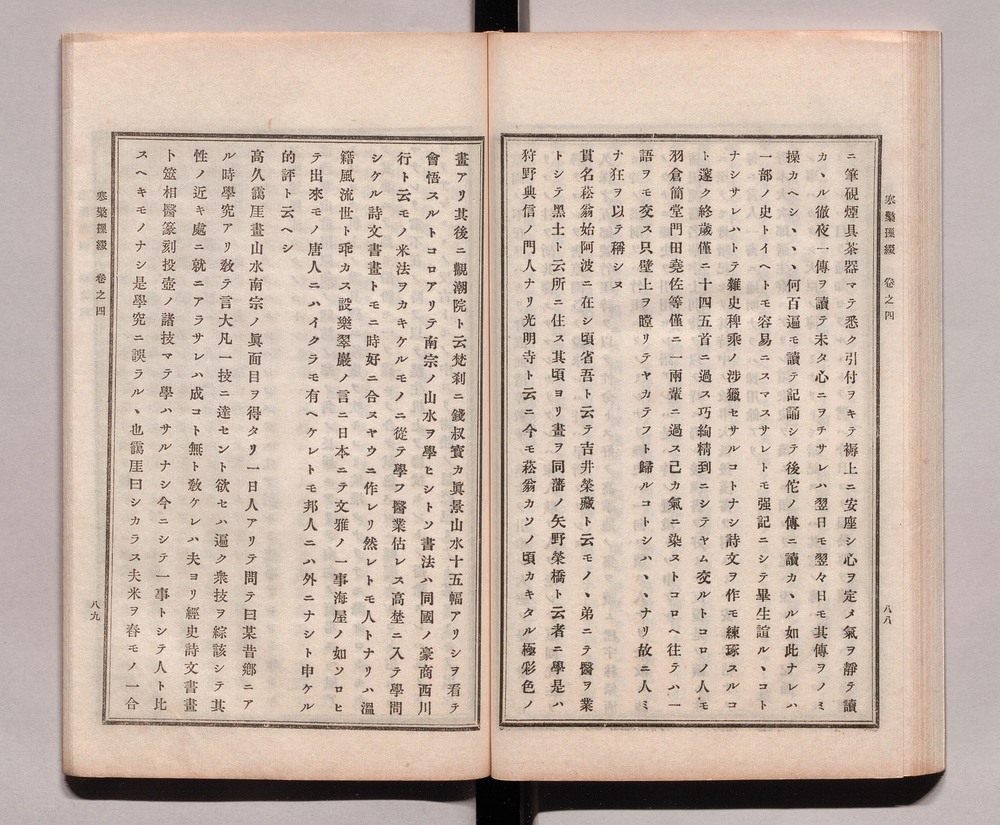 寒檠璅綴　卷之四
八八
ニ筆硯煙具茶器マテ悉ク引付ヲキテ褥上ニ安座シ心ヲ定メ氣ヲ靜テ讀
カヽル徹夜一傳ヲ讀テ未タ心ニヲチサレハ翌日モ翌々日モ其傳ヲノミ
操カヘシヽヽ何百遍モ讀テ記誦シテ後佗ノ傳ニ讀カヽル如此ナレハ
一部ノ史トイヘトモ容易ニスマスサレトモ强記ニシテ畢生諠ルヽコト
ナシサレハトテ雜史稗乘ノ涉獵セサルコトナシ詩文ヲ作モ練琢スルコ
ト邃ク終歲僅ニ十四五首ニ過ス巧絢精到ニシテヤム交ルトコロノ人モ
羽倉簡堂門田堯佐等僅ニ一兩輩ニ過ス己カ氣ニ染ストコロヘ往テハ一
語ヲモ交ス只壁上ヲ瞠リテヤカテフト歸ルコトシハヽヽナリ故ニ人ミ
ナ狂ヲ以テ稱シヌ
貫名菘翁始阿波ニ在シ頃省吾ト云テ吉井榮藏ト云モノヽ弟ニテ醫ヲ業
トシテ黑土ト云所ニ住ス其頃ヨリ畫ヲ同藩ノ矢野榮橋ト云者ニ學是ハ
狩野典信ノ門人ナリ光明寺ト云ニ今モ菘翁カソノ頃カキタル極彩色ノ
畫アリ其後ニ觀潮院ト云梵刹ニ錢叔寶カ眞景山水十五幅アリシヲ看テ
會悟スルトコロアリテ南宗ノ山水ヲ學ヒシトソ書法ハ同國ノ豪商西川
行ト云モノ米法ヲカキケルモノニ從テ學フ醫業估レス高埜ニ入テ學問
シケル詩文書畫トモニ時好ニ合スヤウニ作レリ然レトモ人トナリハ溫
籍風流世ト乖カス設樂翠巖ノ言ニ日本ニテ文雅ノ一事海屋ノ如ソロヒ
テ出來モノ唐人ニハイクラモ有ヘケレトモ邦人ニハ外ニナシト申ケル
的評ト云ヘシ
高久靄厓畫山水南宗ノ眞面目ヲ得タリ一日人アリテ問テ曰某昔鄕ニア
ル時學究アリ敎テ言大凡一技ニ達セント欲セハ遍ク衆技ヲ綜該シテ其
性ノ近キ處ニ就ニアラサレハ成コト無ト敎ケレハ夫ヨリ經史詩文書畫
卜筮相醫篆刻投壺ノ諸技マテ學ハサルナシ今ニシテ一事トシテ人ト比
スヘキモノナシ是學究ニ誤ラルヽ也靄厓曰シカラス夫米ヲ舂モノ一合
寒檠璅綴　卷之四
八九